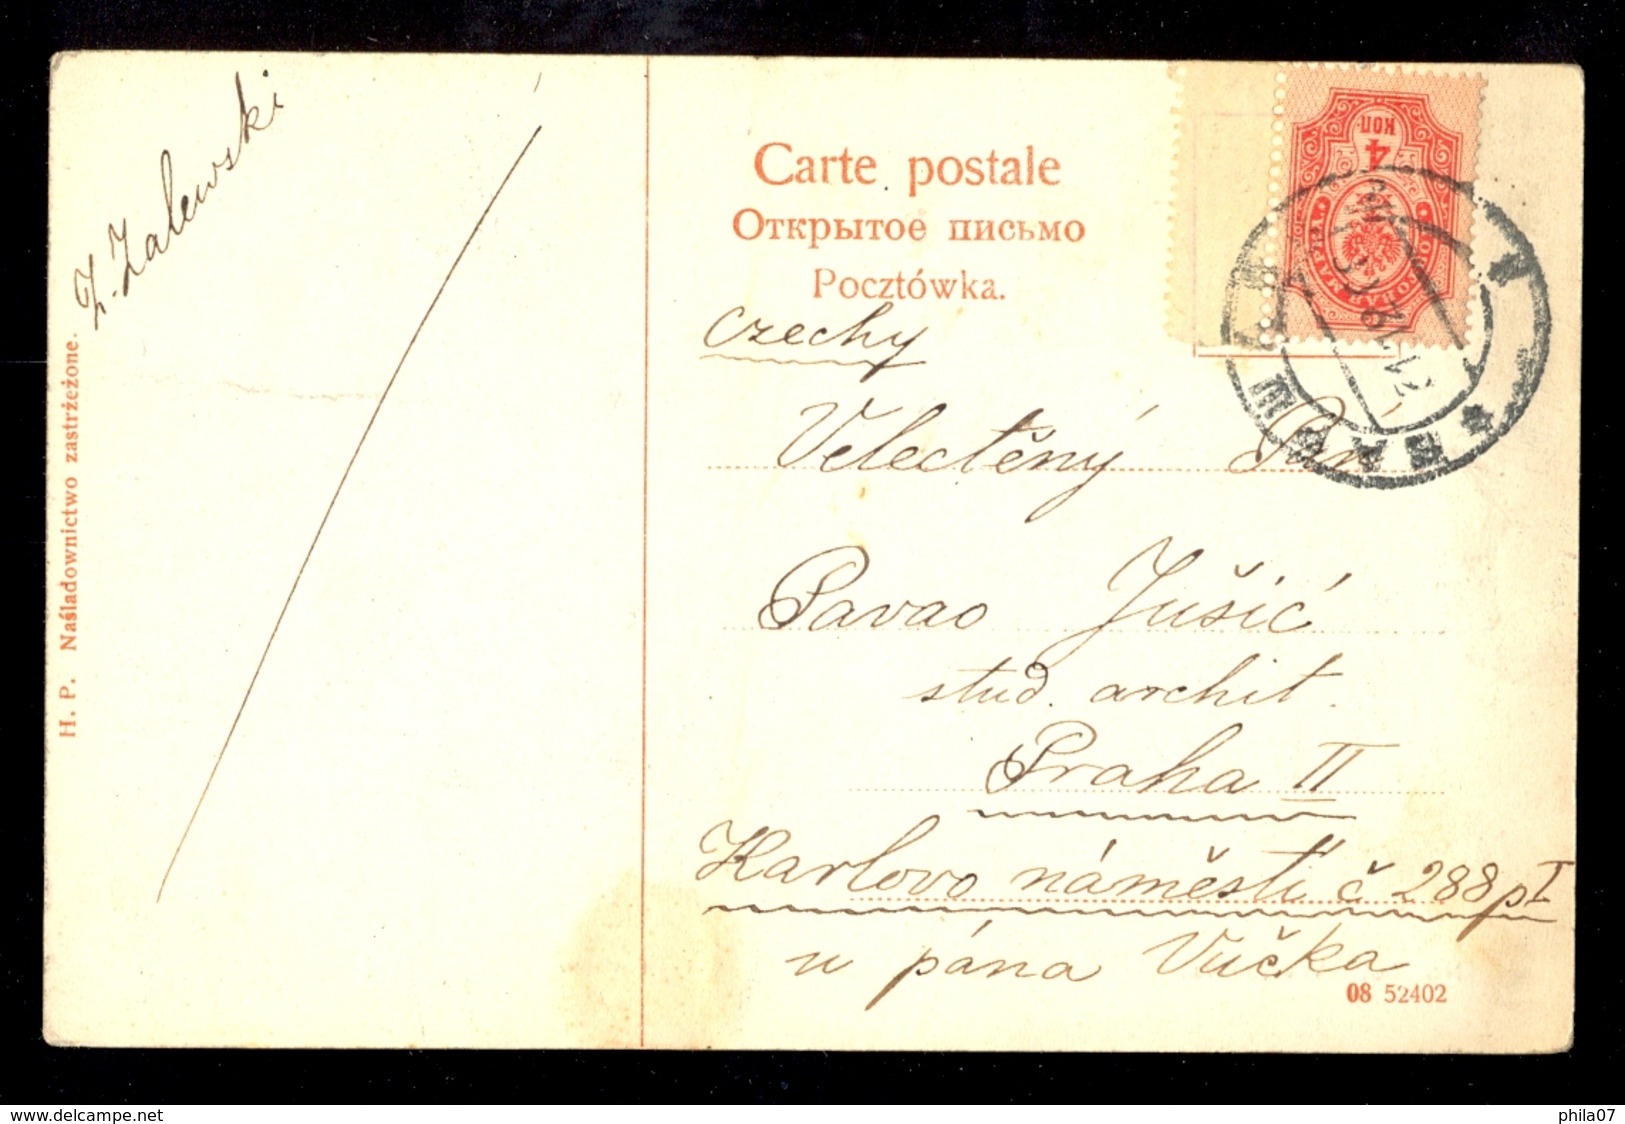 Z. Zalewski
H. P. Naśladownictwo zastrzeżone.
Carte postale
Открытое письмо
Pocztówka.
czechy
Velectěný Pán
Pavao Jušić
stud. archit.
Praha II
Karlovo náměsti č 288 p I
u pána Vučka
08 52402
4
КОП
ПОЧТОВАЯ МАРКА
www.delcampe.net
phila07